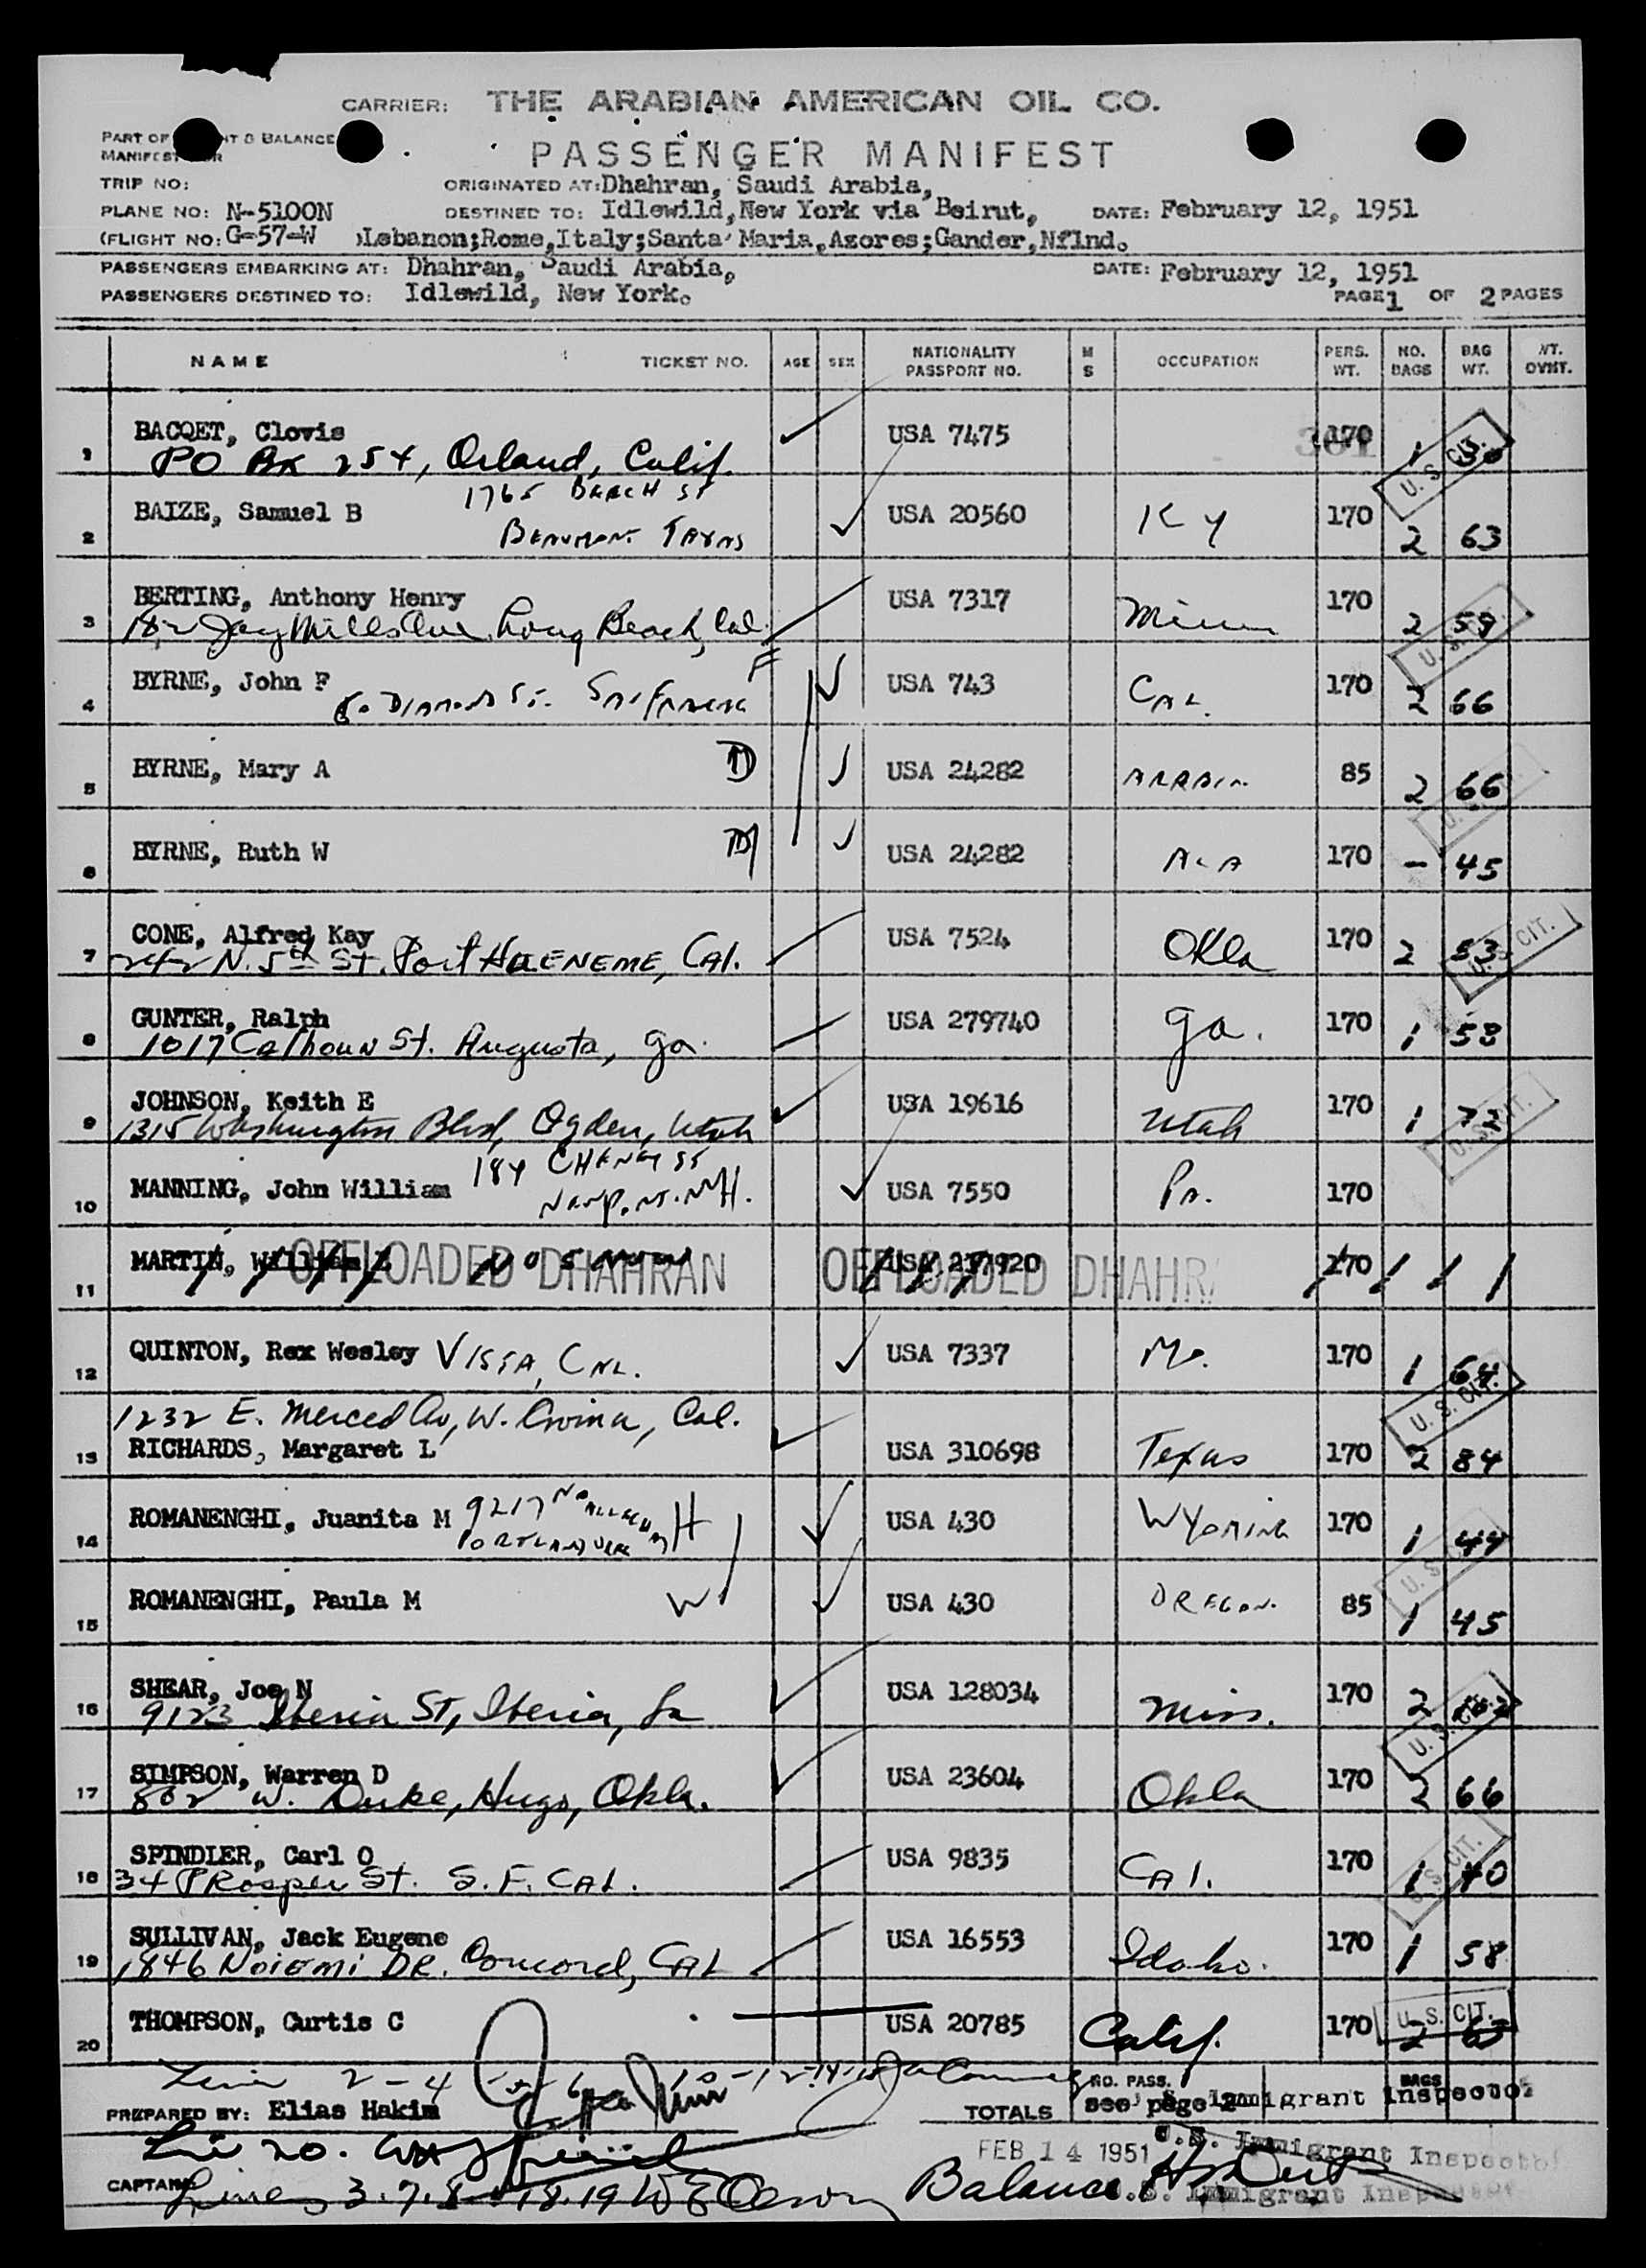 CARRIER: THE ARABIAN AMERICAN OIL CO.
PART OF & BALANCE
PASSENGER MANIFEST
TRIP NO:
ORIGINATED AT: Dhahran, Saudi Arabia,
PLANE NO: N-5100N DESTINED TO: Idlewild, New York via Beirut, DATE: February 12, 1951
(FLIGHT NO: G-57-W Lebanon;Rome,Italy;Santa Maria,Azores;Gander,Nflnd.
PASSENGERS EMBARKING AT: Dhahran, Saudi Arabia, DATE: February 12, 1951
PASSENGERS DESTINED TO: Idlewild, New York. PAGE 1 OF 2 PAGES
NAME TICKET NO. AGE SEX NATIONALITY PASSPORT NO. M S OCCUPATION PERS. WT. NO. BAGS BAG WT. WT. OVHT.
1 BACQET, Clovis USA 7475 170 U.S. CIT.
PO Bx 254, Orland, Calif.
1765 BEACH ST
2 BAIZE, Samuel B USA 20560 KY 170 2 63
BEAUMONT TEXAS
3 BERTING, Anthony Henry USA 7317 Minn 170 2 59
182 Jay Mills Ave. Long Beach, Cal.
4 BYRNE, John F DIAMOND ST. F USA 743 CAL. 170 2 66
5 BYRNE, Mary A D USA 24282 ARABIA 85 2 66
6 BYRNE, Ruth W USA 24282 170 - 45
7 CONE, Alfred Kay USA 7524 Okla 170 2 53 U.S. CIT.
242 N. 5th St. Port HUENEME, CAl.
8 GUNTER, Ralph USA 279740 Ga. 170 1 58
1017 Calhoun St. Augusta, Ga.
9 JOHNSON, Keith E USA 19616 Utah 170 1 72 U.S. CIT.
1315 Washington Blvd, Ogden, Utah
184 CHENEY ST
10 MANNING, John William USA 7550 Pa. 170
NEWPORT. N.H.
11 MARTIN, William OFFLOADED DHAHRAN USA 237920 OFFLOADED DHAHR 170
12 QUINTON, Rex Wesley VISTA, CAL. USA 7337 Mo. 170 1 64
1232 E. Merced Av, W. Covina, Cal. U.S. CIT.
13 RICHARDS, Margaret L USA 310698 Texas 170 2 84
14 ROMANENGHI, Juanita M 9217 No H USA 430 WYOMING 170 1 44
PORTLAND
15 ROMANENGHI, Paula M W USA 430 OREGON. 85 1 45
16 SHEAR, Joe N USA 128034 Miss. 170 2
9123 Iberia St, Iberia, La
17 SIMPSON, Warren D USA 23604 Okla 170 2 66
802 W. Duke, Hugo, Okla.
18 SPINDLER, Carl O USA 9835 CAl. 170 1 40 U.S. CIT.
34 Prosper St. S.F. CAL.
19 SULLIVAN, Jack Eugene USA 16553 Idaho. 170 1 58
1846 Noiemi DR. Concord, CAL
20 THOMPSON, Curtis C USA 20785 Calif. 170 U.S. CIT.
2 - 4 - 5 - 6 10 - 12 - 14 - 15
PREPARED BY: Elias Hakim TOTALS NO. PASS. see page 2 BAGS Immigrant Inspector
20. FEB 14 1951 U.S. Immigrant Inspector
CAPTAIN Lines 3.7.8 18.19 Balance U.S. Immigrant Inspector